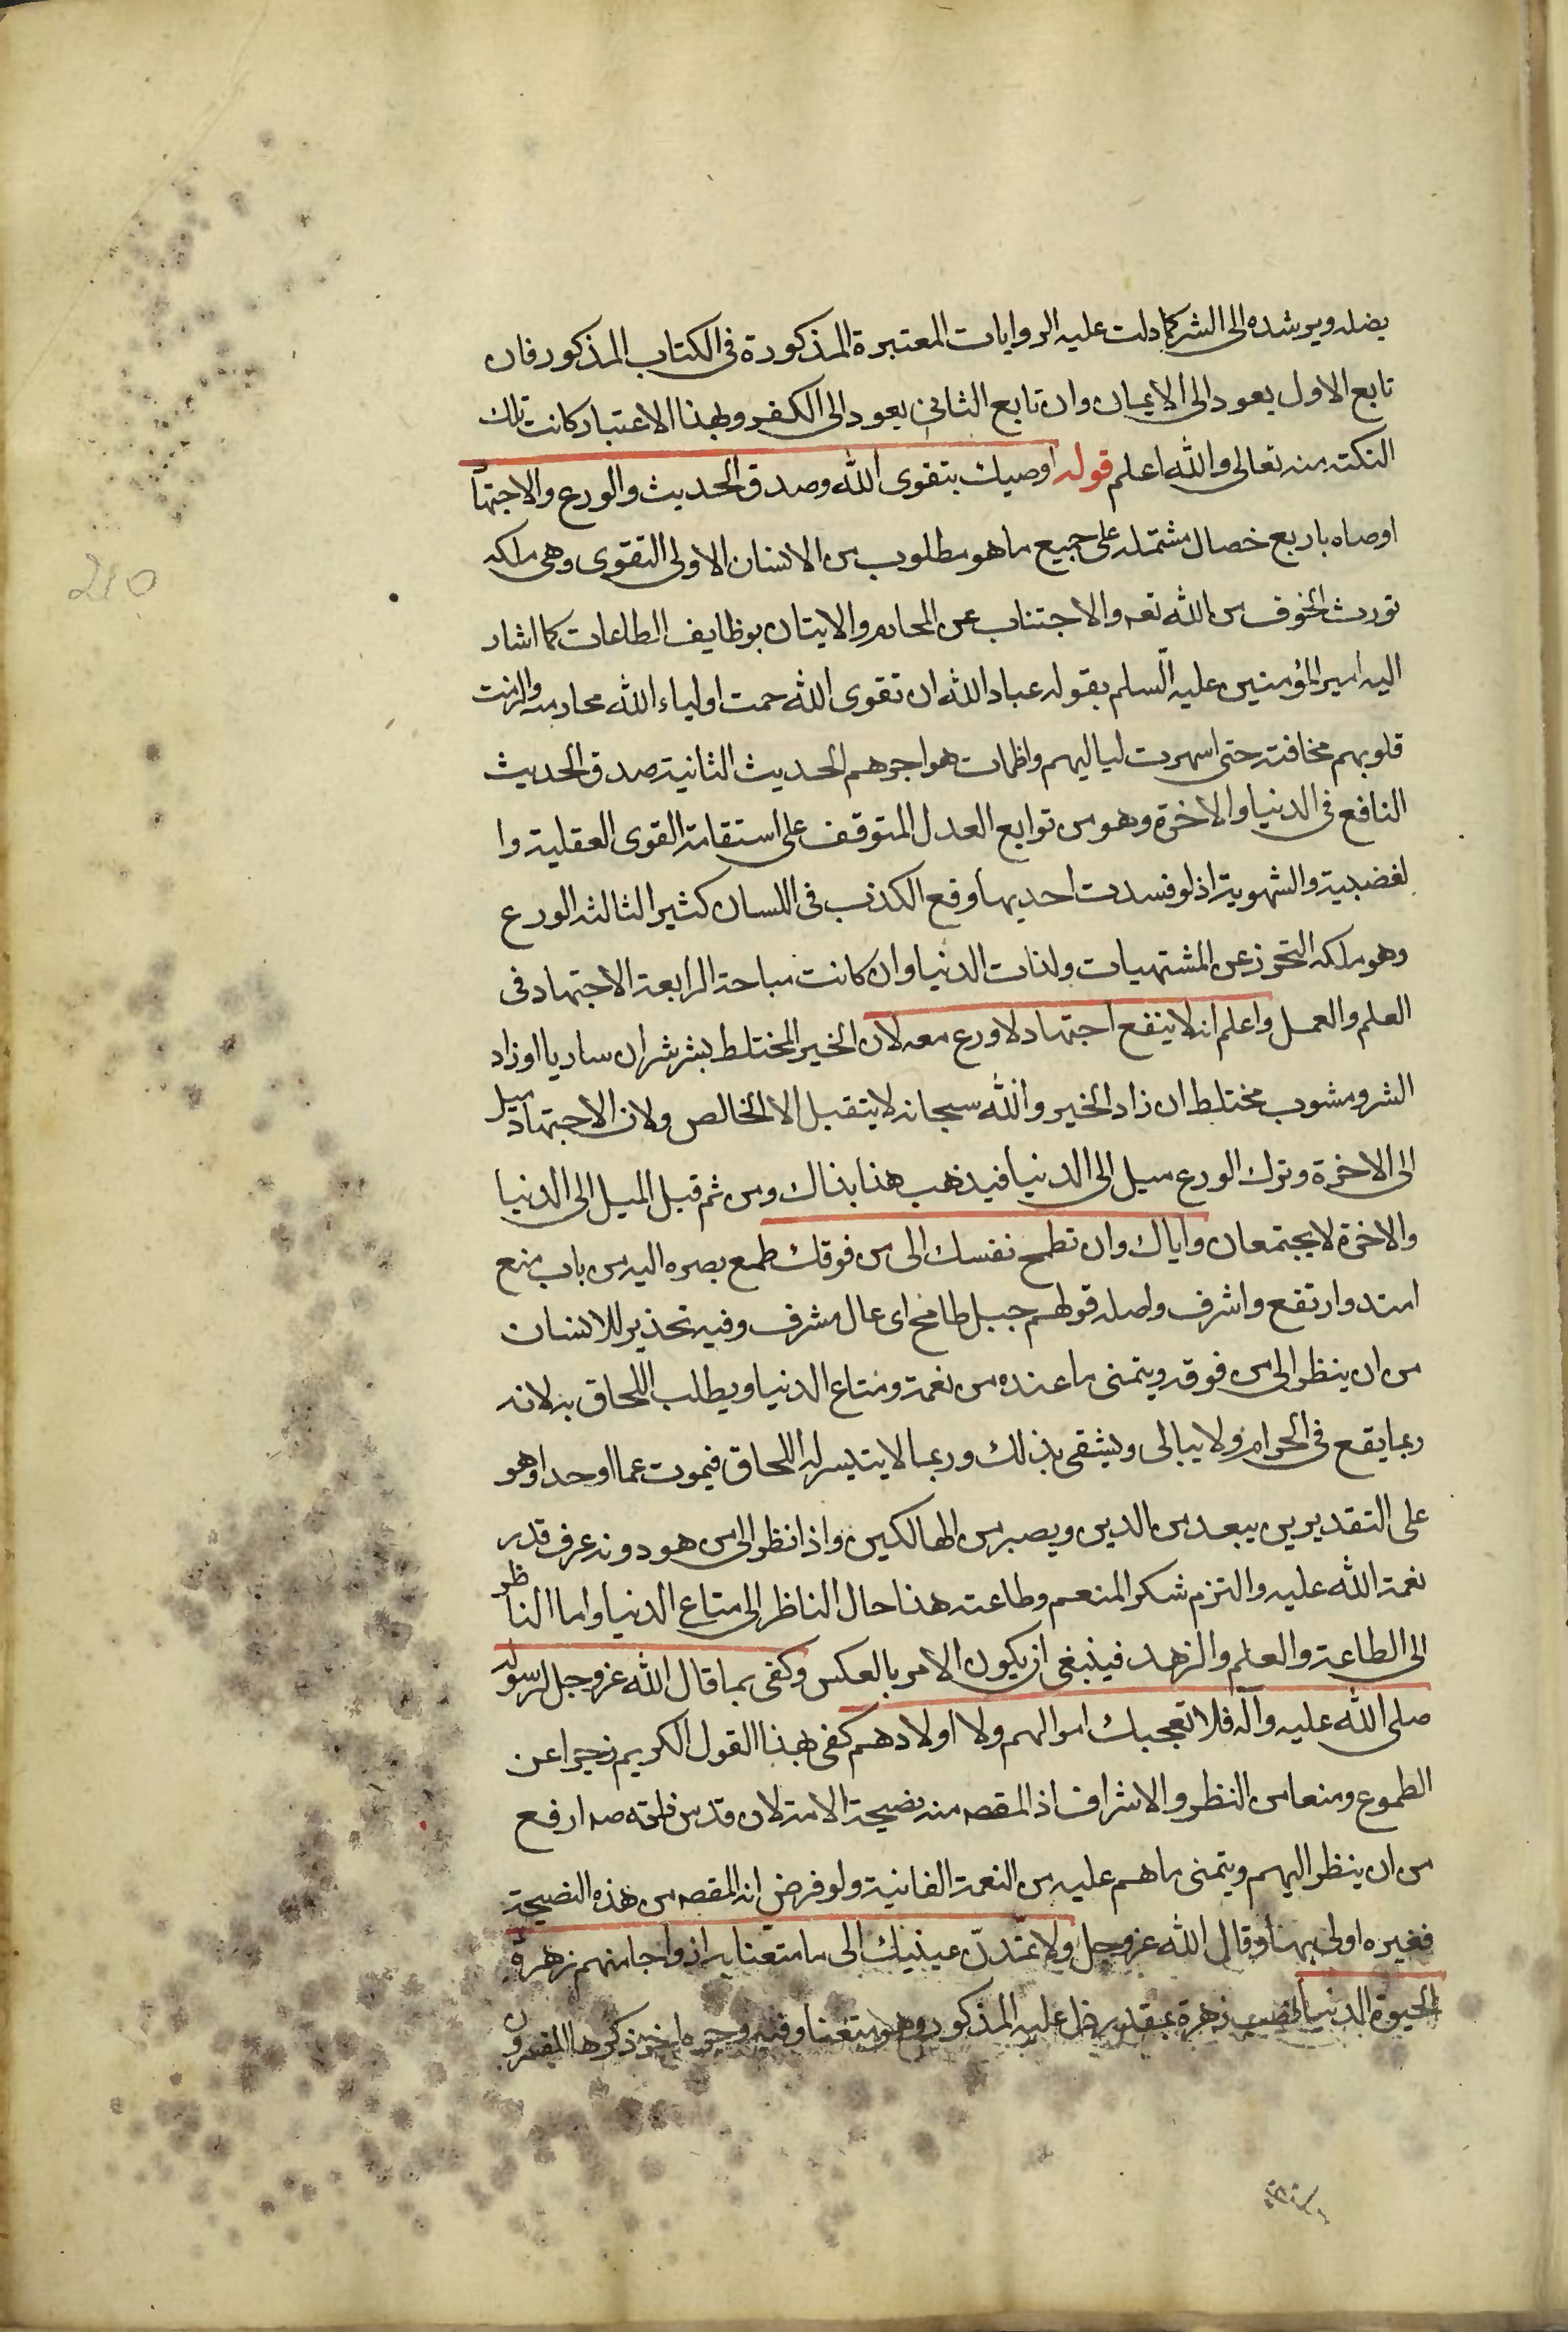 يضله ويرشده الى الشر كما دلت عليه الروايات المعتبرة المذكورة فى الكتاب المذكور فان
تابع الاول يعود الى الايمان وان تابع الثانى يعود الى الكفر وبهذا الاعتبار كانت تلك
النكتة منه تعالى والله اعلم قوله اوصيك بتقوى الله وصدق الحديث والورع والاجتهاد
اوصاه باربع خصال مشتمله على جميع ما هو مطلوب من الانسان الاولى التقوى وهى ملكه
تورث الخوف من الله تعه والاجتناب عن المحارم والايتان بوظايف الطاعات كما اشار
اليه امير المؤمنين عليه السلم بقوله عباد الله ان تقوى الله حمت اولياء الله محارمه والزمت
قلوبهم مخافته حتى اسهرت لياليهم واظمات هواجرهم الحديث الثانية صدق الحديث
النافع فى الدنيا والاخرة وهو من توابع العدل المتوقف على استقامة القوى العقلية وا
لغضبية والشهوية اذ لو فسدت احديها وقع الكذب فى اللسان كثيرا الثالثه الورع
وهو ملكه التحرز عن المشتهيات ولذات الدنيا وان كانت مباحة الرابعة الاجتهاد فى
العلم والعمل واعلم انه لا ينفع اجتهاد لا ورع معه لان الخير المختلط بشر شر ان ساويا او زاد
الشر ومشوب مختلط ان زاد الخير والله سبحانه لا يتقبل الا الخالص ولان الاجتهاد ميل
الى الاخرة وترك الورع ميل الى الدنيا فيذهب هذا بذاك ومن ثم قيل الميل الى الدنيا
والاخرة لا يجتمعان واياك وان تطمح نفسك الى من فوقك طمح بصره اليه من باب منع
امتد وارتفع واشرف واصله قولهم جبل طامح اى عال مشرف وفيه تحذير للانسان
من ان ينظر الى من فوقه ويتمنى ما عنده من نعمة ومتاع الدنيا ويطلب اللحاق به لانه
ربما يقع فى الحرام ولا يبالى ويشقى بذلك وربما لا يتيسر له اللحاق فيموت غما او حدا وهو
على التقديرين يبعد من الدين ويصير من الهالكين واذا نظر الى من هو دونه عرف قدر
نعمة الله عليه والتزم شكر المنعم وطاعته هذا حال الناظر الى متاع الدنيا واما الناظر
الى الطاعة والعلم والزهد فينبغى ان يكون الامر بالعكس وكفى بما قال الله عز وجل لرسوله
صلى الله عليه وآله فلا تعجبك اموالهم ولا اولادهم كفى بهذا القول الكريم زجرا عن
الطموع ومنعا من النظر والاشراف اذ المقصه منه نصيحة الامة لان قدس ذاته صه ارفع
من ان ينظر اليهم ويتمنى ما هم عليه من النعمة الفانية ولو فرض انه المقصه من هذه النصيحة
فغيره اولى بها وقال الله عز وجل ولا تمدن عينيك الى ما متعنا به ازواجا منهم زهرة
الحيوة الدنيا نصب زهرة بمقدر دل عليه المذكور وهو متعنا وفيه وجوه اخر ذكرها المفسرون
210